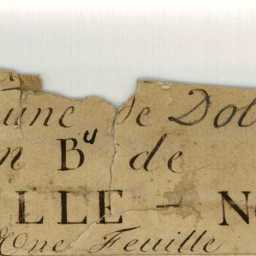 une de Dol
n Bu de
LLE - N
Une Feuille